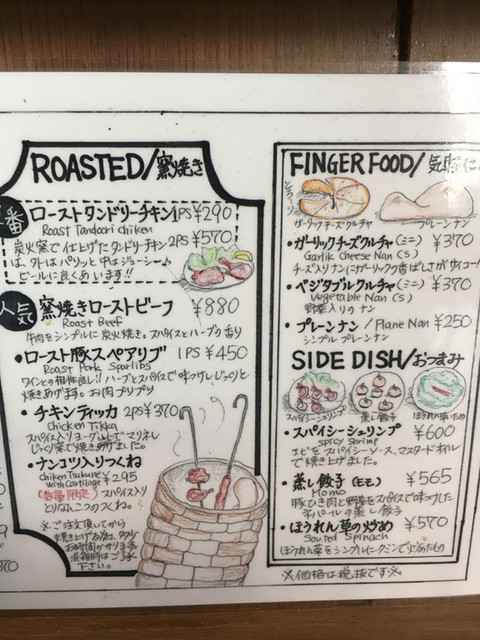 ROASTED/窯焼き
番
ローストタンドリーチキン 1PS ¥290
Roast Tandoori chiken 2PS ¥570
炭火窯で仕上げたタンドリーチキン
は、外はパリッと中はジューシー
ビールに良くあいます!!
人気
窯焼きローストビーフ ¥880
Roast Beef
牛肉をシンプルに炭火焼き。スパイスとハーブの香り
・ロースト豚スペアリブ 1PS ¥450
Roast Pork Sparlibs
ワインとの相性良し!!ハーブとスパイスで味つけしじっくりと
焼きあげます。お肉プリプリ
・チキンティッカ 2PS ¥370
Chicken Tikka
スパイス入りヨーグルトでマリネし
じっくり窯で焼き上げました。
・ナンコツ入りつくね
chiken Tsukune with cartilage ¥295
(数量限定) スパイス入り
とりなんこつのつくね。
※ご注文頂してから
焼き上げる為、多少
お時間がかります。
混雑時はご了承
下さい。
FINGER FOOD/気軽に
ガーリックチーズクルチャ
プレーンナン
・ガーリックチーズクルチャ(ミニ) ¥370
Garlik Cheese Nan (S)
チーズ入りナンにガーリックの香ばしさがサイコー!!
・ベジタブルクルチャ(ミニ) ¥370
Vegetable Nan (S)
野菜入りのナン
・プレーンナン / Plane Nan ¥250
シンプルプレーンナン
SIDE DISH/おつまみ
スパイシーシュリンプ
蒸し餃子
ほうれん草いため
・スパイシーシュリンプ ¥600
spicy Shrimp
エビをスパイシーソース、マスタードオイル
で焼き上げました。
・蒸し餃子(モモ) ¥565
Momo
豚ひき肉と野菜をスパイスで味つけした
ネパールの蒸し餃子
・ほうれん草の炒め ¥570
Souted Spinach
ほうれん草をシンプルにクミンでいためたもの
※価格は税抜です※